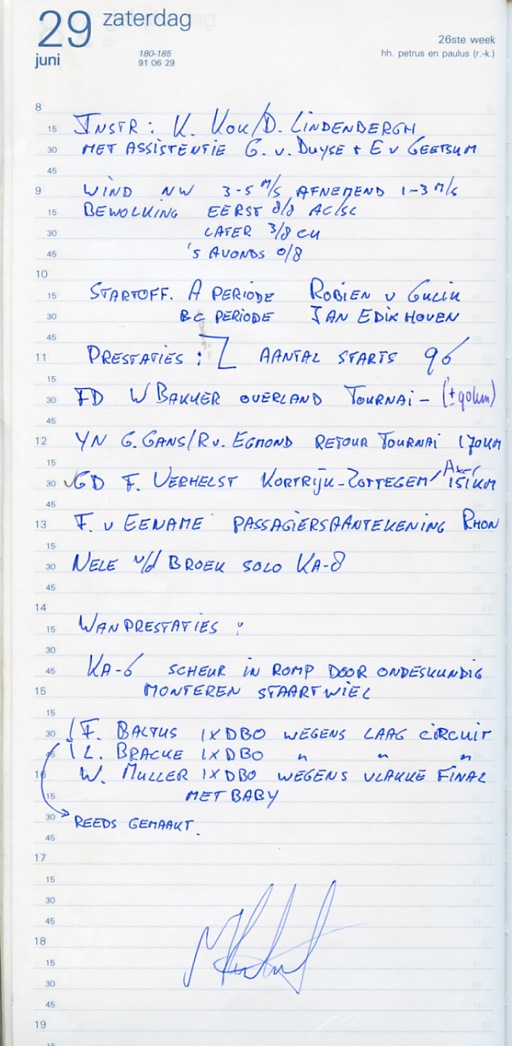 29 zaterdag
juni
180-185
91 06 29
26ste week
hh. petrus en paulus (r.-k.)
8
15 INSTR: K. KOK/D. LINDENBERGH
30 MET ASSISTENTIE G. v. DUYSE + E v GEETSUM
45
9 WIND NW 3-5 M/S AFNEMEND 1-3 M/S
15 BEWOLKING EERST 8/8 AC/SC
30 LATER 3/8 CU
45 'S AVONDS 0/8
10
15 STARTOFF. A PERIODE ROBIEN v GULIK
30 BC PERIODE JAN EDIKHOVEN
45
11 PRESTATIES: AANTAL STARTS 96
15
30 FD W BAKKER OVERLAND TOURNAI - (±90km)
45
12 YN G. GANS/R v. EGMOND RETOUR TOURNAI 170KM
15
30 GD F. VERHELST KORTRIJK-ZOTTEGEM/AXEL 151KM
45
13 F. v EENAME PASSAGIERSAANTEKENING RHON
15
30 NELE v/d BROEK SOLO KA-8
45
14
15 WANPRESTATIES:
30
45 KA-6 SCHEUR IN ROMP DOOR ONDESKUNDIG
15 MONTEREN STAARTWIEL
15
30 F. BALTUS 1X DBO WEGENS LAAG CIRCUIT
45 L. BRACKE 1X DBO " " "
16 W. MULLER 1X DBO WEGENS VLAKKE FINAL
15 MET BABY
30 REEDS GEMAAKT.
45
17
15
30
45
18
15
30
45
19
15